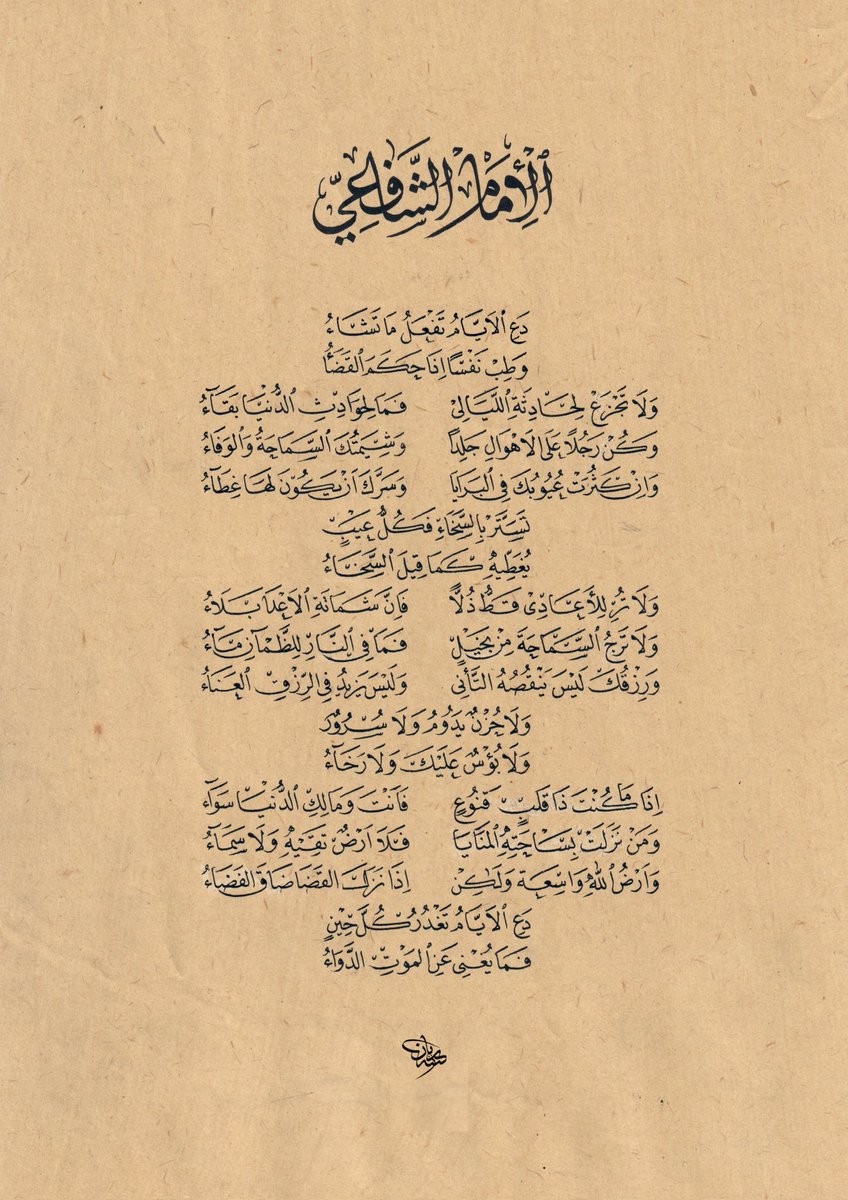 ٱلْإِمَامُ ٱلشَّافِعِيّ
دَعِ ٱلْأَيَّامُ تَفْعَلُ مَا تَشَاءُ
وَطِبْ نَفْسًا إِذَا حَكَمَ ٱلْقَضَاءُ
وَلَا تَجْزَعْ لِحَادِثَةِ ٱللَّيَالِي فَمَا لِحَوَادِثِ ٱلدُّنْيَا بَقَآءُ
وَكُنْ رَجُلًا عَلَى ٱلْأَهْوَالِ جَلْدًا وَشِيمَتُكَ ٱلسَّمَاحَةُ وَٱلْوَفَاءُ
وَإِنْ كَثُرَتْ عُيُوبُكَ فِي ٱلْبَرَايَا وَسَرَّكَ أَنْ يَكُونَ لَهَا غِطَآءُ
تَسَتَّرْ بِٱلسَّخَاءِ فَكُلُّ عَيْبٍ
يُغَطِّيهِ كَمَا قِيلَ ٱلسَّخَاءُ
وَلَا تُرِ لِلْأَعَادِي قَطُّ ذُلًّا فَإِنَّ شَمَاتَةَ ٱلْأَعْدَا بَلَاءُ
وَلَا تَرْجُ ٱلسَّمَاحَةَ مِنْ بَخِيلٍ فَمَا فِي ٱلنَّارِ لِلظَّمْآنِ مَآءُ
وَرِزْقُكَ لَيْسَ يَنْقُصُهُ ٱلتَّأَنِّي وَلَيْسَ يَزِيدُ فِي ٱلرِّزْقِ ٱلْعَنَاءُ
وَلَا حُزْنٌ يَدُومُ وَلَا سُرُورٌ
وَلَا بُؤْسٌ عَلَيْكَ وَلَا رَخَآءُ
إِذَا مَا كُنْتَ ذَا قَلْبٍ قَنُوعٍ فَأَنْتَ وَمَالِكُ ٱلدُّنْيَا سَوَآءُ
وَمَنْ نَزَلَتْ بِسَاحَتِهِ ٱلْمَنَايَا فَلَا أَرْضٌ تَقِيهِ وَلَا سَمَآءُ
وَأَرْضُ ٱللَّهِ وَاسِعَةٌ وَلَكِنْ إِذَا نَزَلَ ٱلْقَضَا ضَاقَ ٱلْفَضَاءُ
دَعِ ٱلْأَيَّامُ تَغْدُرُ كُلَّ حِينٍ
فَمَا يُغْنِي عَنِ ٱلْمَوْتِ ٱلدَّوَاءُ